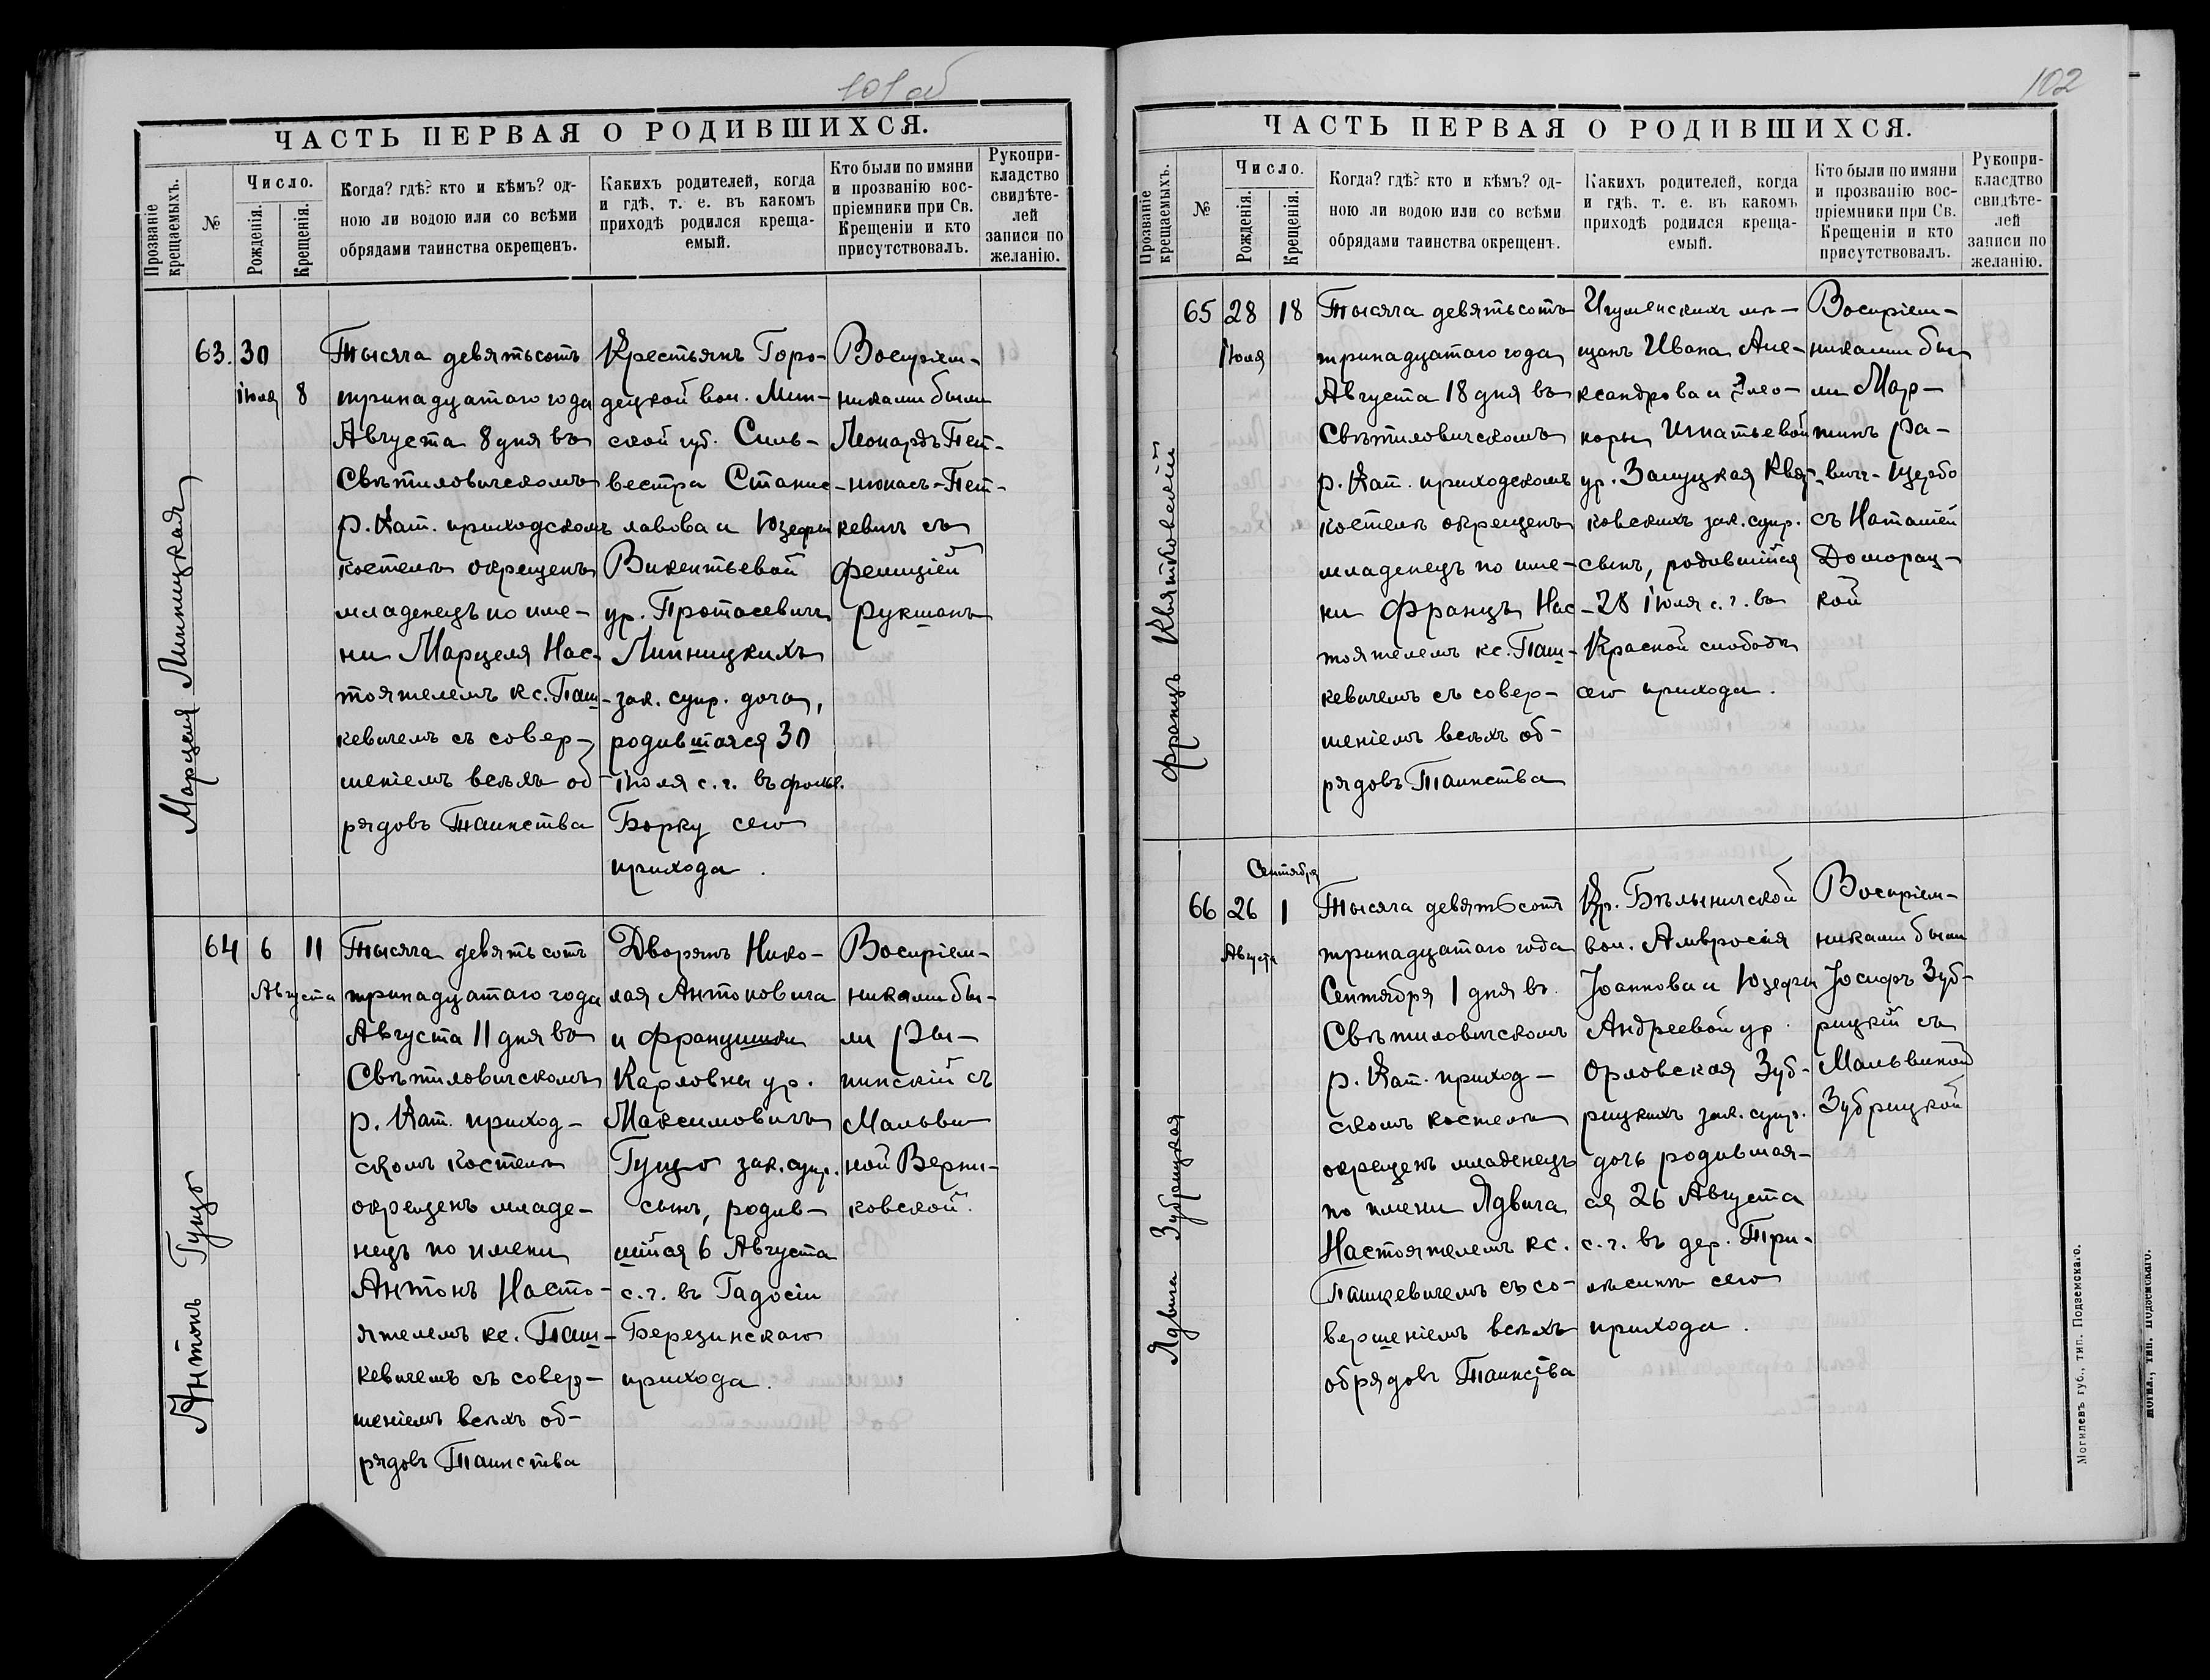 101 об
ЧАСТЬ ПЕРВАЯ О РОДИВШИХСЯ.
Прозваніе крещаемыхъ.
№
Число.
Рожденія.
Крещенія.
Когда? гдѣ? кто и кѣмъ? од-
ною ли водою или со всѣми
обрядами таинства окрещенъ.
Какихъ родителей, когда
и гдѣ, т. е. въ какомъ
приходѣ родился креща-
емый.
Кто были по имяни
и прозванію вос-
пріемники при Св.
Крещеніи и кто
присутствовалъ.
Рукопри-
кладство
свидѣте-
лей
записи по
желанію.
Марцеля Липницкая
63.
30
Іюля
8
Тысяча девятьсотъ
тринадцатаго года
Августа 8 дня въ
Свѣтиловичскомъ
р. Кат. приходскомъ
костелѣ окрещенъ
младенецъ по име-
ни Марцеля Нас-
тоятелемъ кс. Паш-
кевичемъ съ совер-
шеніемъ всѣхъ об-
рядовъ Таинства
Крестьянъ Горо-
децкой вол. Мин-
ской губ. Силь-
вестра Станис-
лавова и Юзефы
Викентьевой
ур. Протасевичъ
Липницкихъ
зак. супр. дочь,
родившаяся 30
Іюля с. г. въ фольв.
Борку сего
прихода.
Воспріем-
никами были
Леонардъ Пет-
кевичъ съ
Фелиціей
Рукшанъ
Антонъ Гуцо
64
6
Августа
11
Тысяча девятьсотъ
тринадцатаго года
Августа 11 дня въ
Свѣтиловичскомъ
р. Кат. приход-
скомъ костелѣ
окрещенъ младе-
нецъ по имени
Антонъ Насто-
ятелемъ кс. Паш-
кевичемъ съ совер-
шеніемъ всѣхъ об-
рядовъ Таинства
Дворянъ Нико-
лая Антоновича
и Францишки
Карловны ур.
Максимовичъ
Гуцо зак. супр.
сынъ, родив-
шійся 6 Августа
с. г. въ Гадосіи
Березинскаго
прихода.
Воспріем-
никами бы-
ли
пинскій съ
Мальви-
ной Верни-
ковской.
102
ЧАСТЬ ПЕРВАЯ О РОДИВШИХСЯ.
Прозваніе крещаемыхъ.
№
Число.
Рожденія.
Крещенія.
Когда? гдѣ? кто и кѣмъ? од-
ною ли водою или со всѣми
обрядами таинства окрещенъ.
Какихъ родителей, когда
и гдѣ, т. е. въ какомъ
приходѣ родился креща-
емый.
Кто были по имяни
и прозванію вос-
пріемники при Св.
Крещеніи и кто
присутствовалъ.
Рукопри-
класдтво
свидѣте-
лей
записи по
желанію.
Францъ Квятковскій
65
28
Іюля
18
Тысяча девятьсотъ
тринадцатаго года
Августа 18 дня въ
Свѣтиловичскомъ
р. Кат. приходскомъ
костелѣ окрещенъ
младенецъ по име-
ни Францъ Нас-
тоятелемъ кс. Паш-
кевичемъ съ совер-
шеніемъ всѣхъ об-
рядовъ Таинства
Игуменскихъ мѣ-
щанъ Ивана Але-
ксандрова и Элео-
норы Игнатьевой
ур. Залуцкая Квят-
ковскихъ зак. супр.
сынъ, родившійся
28 Іюля с. г. въ
Красной слободѣ
сего прихода.
Воспріем-
никами бы-
ли Мар-
тинъ Ра-
вичъ-Щербо
съ Наталіей
Доморац-
кой
Ядвига Зубрицкая
66
26
Августа
Сентября
1
Тысяча девятьсотъ
тринадцатаго года
Сентября 1 дня въ
Свѣтиловичскомъ
р. Кат. приход-
скомъ костелѣ
окрещенъ младенецъ
по имени Ядвига
Настоятелемъ кс.
Пашкевичемъ съ со-
вершеніемъ всѣхъ
обрядовъ Таинства
Кр. Бѣлыничской
вол. Амвросія
Іоаннова и Юзефы
Андреевой ур.
Орловская Зуб-
рицкихъ зак. супр.
дочь родившая-
ся 26 Августа
с. г. въ дер. Три-
лѣсинѣ сего
прихода.
Воспріем-
никами были
Іосифъ Зуб-
рицкій съ
Мальвиной
Зубрицкой
Могилевъ губ., тип. Подземскаго.
Могил., тип. Подземскаго.